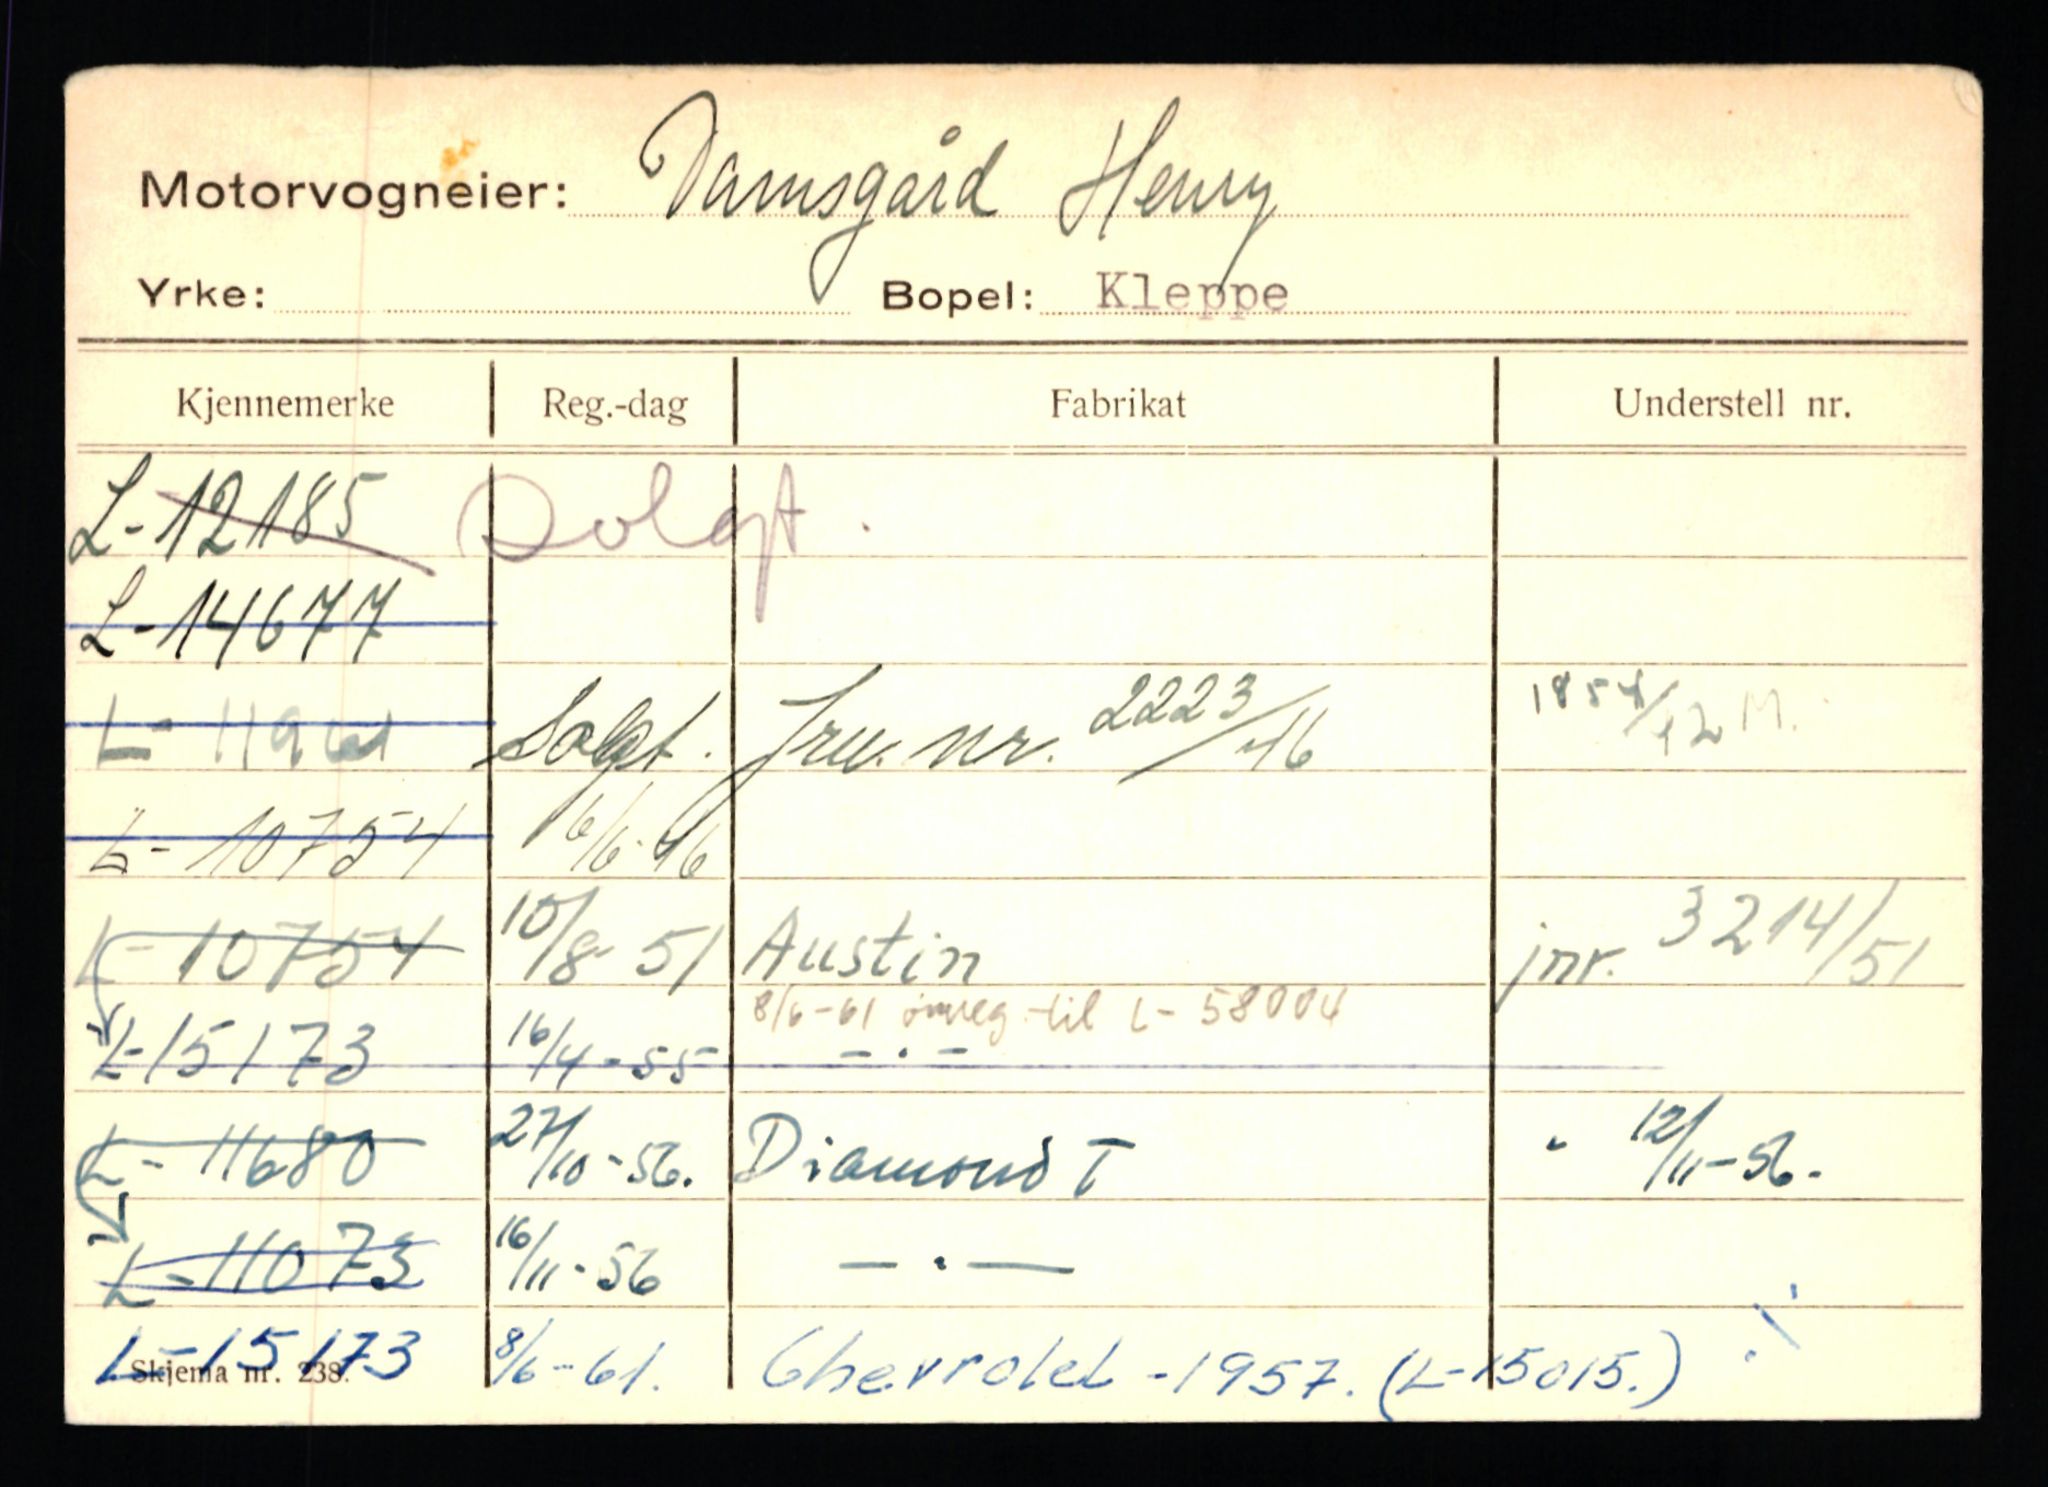 Motorvogneier: Damsgård Henry
Yrke: Bopel: Kleppe
Kjennemerke Reg.-dag Fabrikat Understell nr.
L-12185 Solgt.
L-14677
L- Solgt. Jrn. nr. 2223/46 1854/42 M.
L-10754 16/6-46
L-10754 10/8-51 Austin jnr. 3214/51
8/6-61 omreg. til L-58004
L-15173 16/4-55 -·-
L-11680 27/10-56. Diamond T " 12/11-56.
L-11073 16/11-56 -·-
L-15173 8/6-61. Chevrolet -1957. (L-15015.)
Skjema nr. 238.